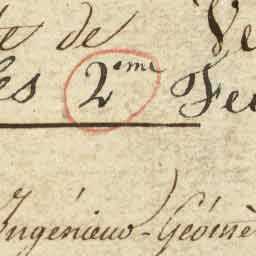 de Ve
les 2eme Feu
Ingénieur-Géomè